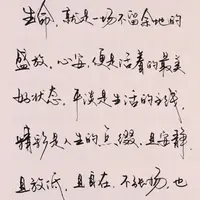 生命,就是一场不留余地的
盛放。心安,便是活着的最美
好状态。平淡是生活的主线,
精彩是人生的点缀。且安静,
且放低,且自在。不张扬,也